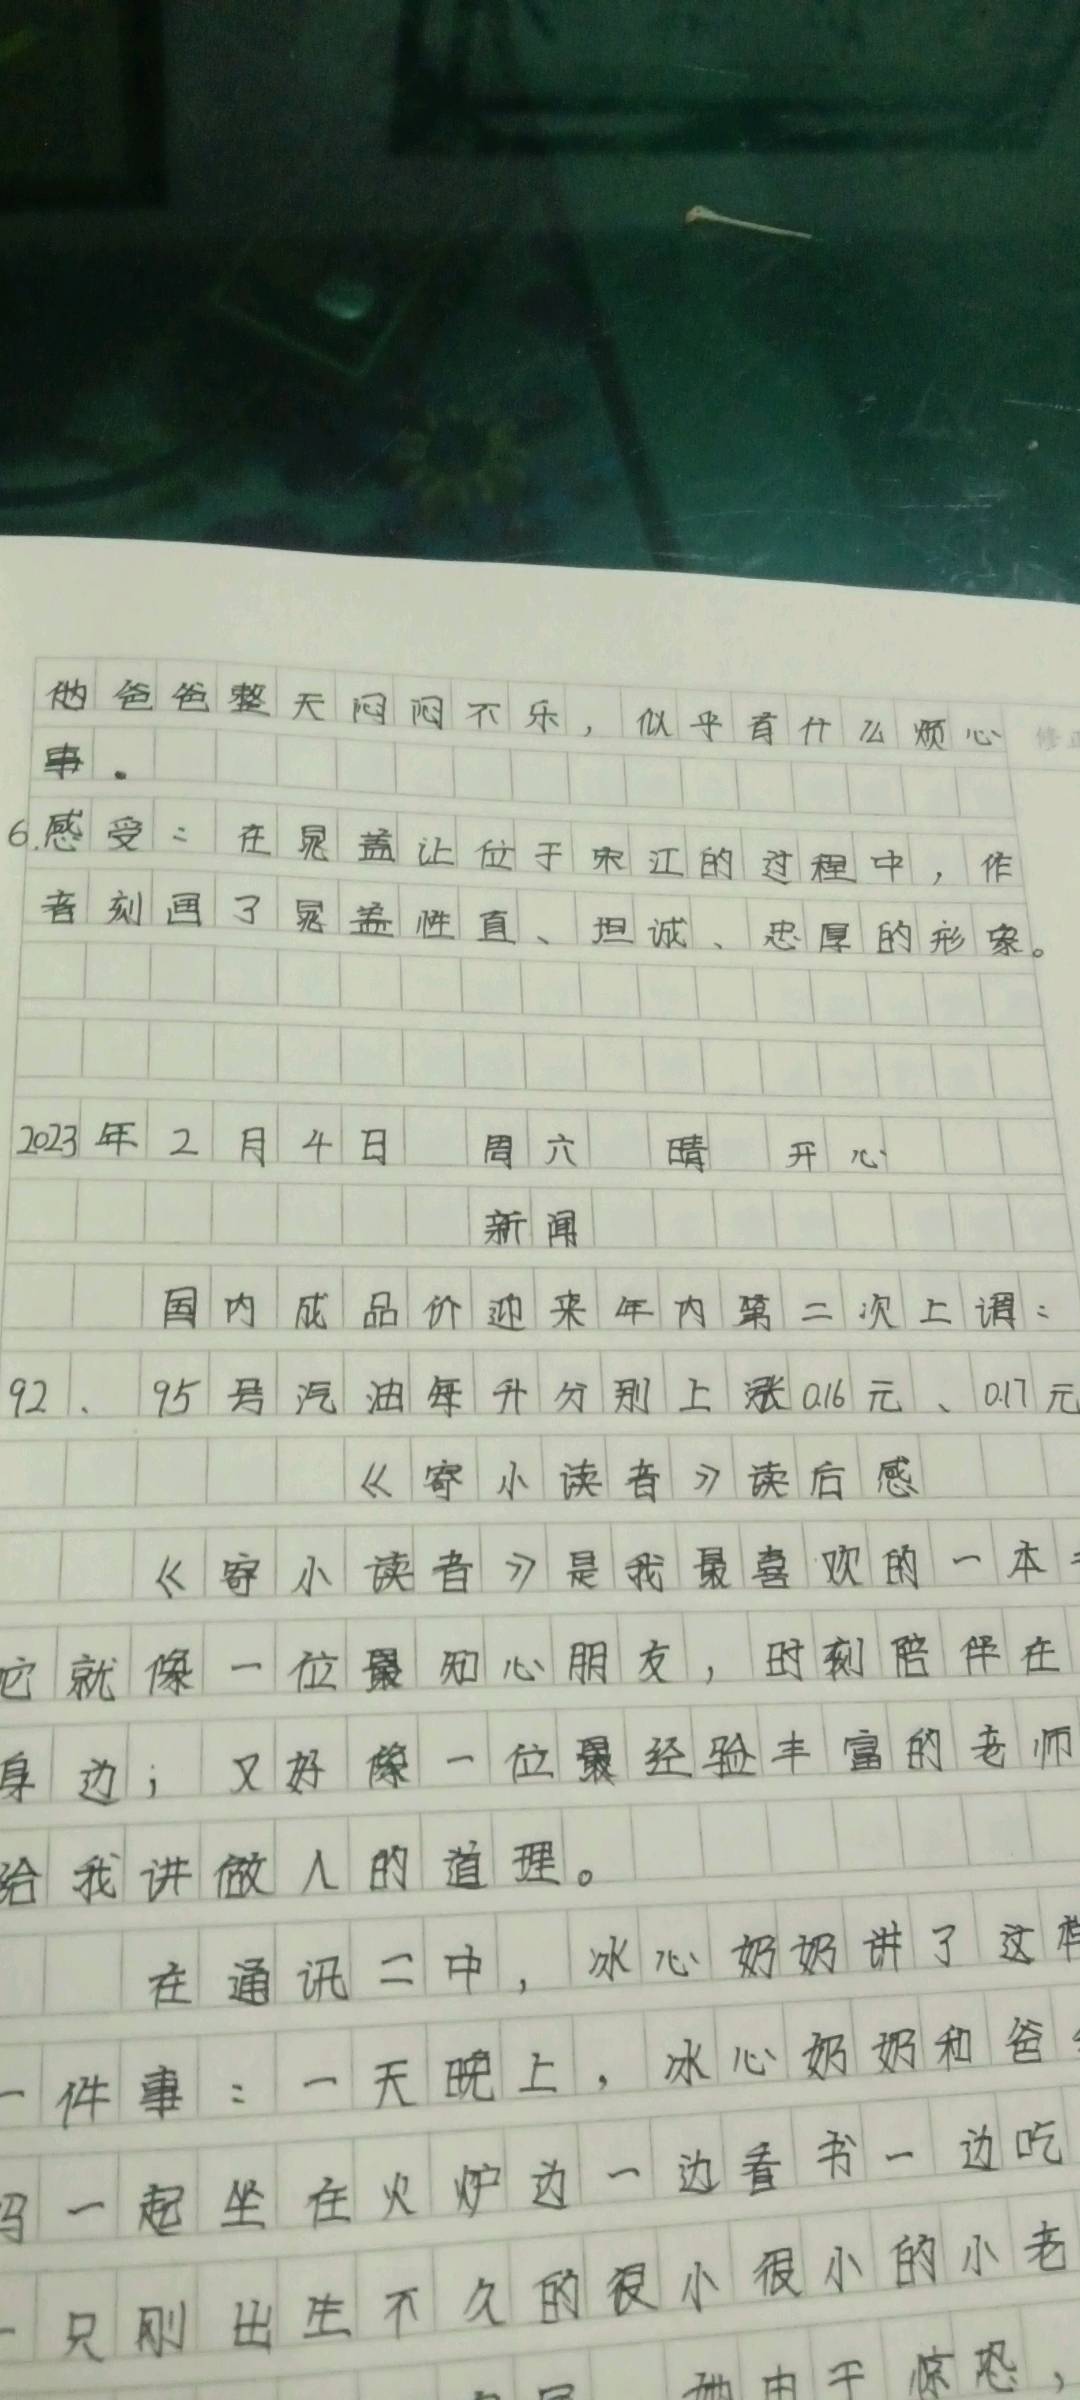 他爸爸整天闷闷不乐，似乎有什么烦心
修正
事。
6.感受：在晁盖让位于宋江的过程中，作
者刻画了晁盖性直、坦诚、忠厚的形象。
2023年2月4日 周六 晴 开心
新闻
国内成品价迎来年内第二次上调：
92、95号汽油每升分别上涨0.16元、0.17元
《寄小读者》读后感
《寄小读者》是我最喜欢的一本
它就像一位最知心朋友，时刻陪伴在
身边；又好像一位最经验丰富的老师
给我讲做人的道理。
在通讯二中，冰心奶奶讲了这样
一件事：一天晚上，冰心奶奶和爸
妈一起坐在火炉边一边看书一边吃
一只刚出生不久的很小很小的小老
她由于惊恐，